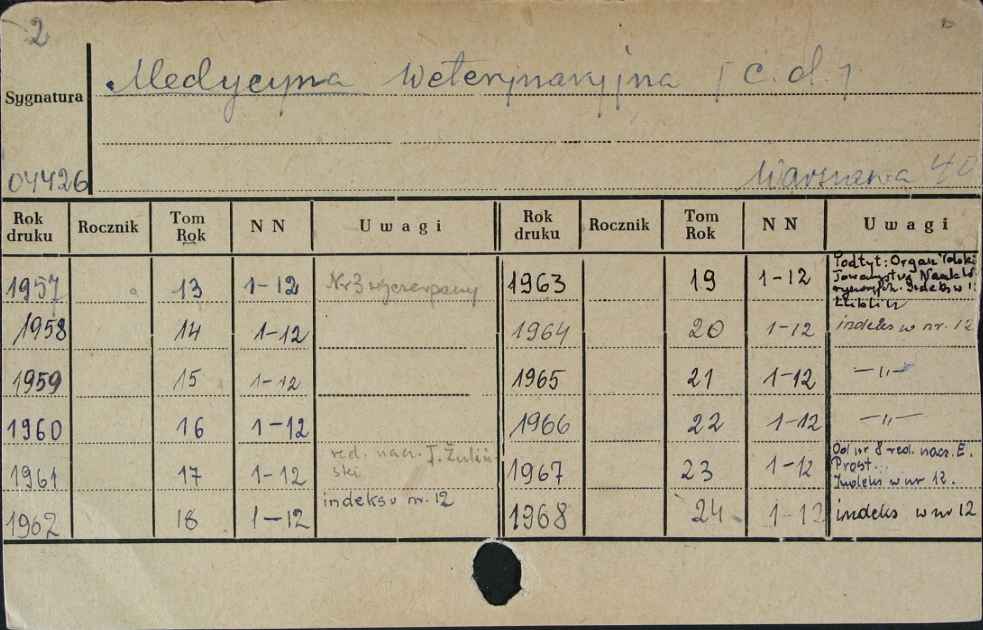 2
Medycyna Weterynaryjna / c.d. /
Sygnatura
04426
Warszawa 40
Rok druku Rocznik Tom Rok N N Uwagi Rok druku Rocznik Tom Rok N N Uwagi
1957 13 1-12 Nr 3 wyczerpany 1963 19 1-12 Podtyt: Organ Polski Towarzystwa Nauk W
Indeks w
1958 14 1-12 1964 20 1-12 indeks w nr. 12
1959 15 1-12 1965 21 1-12 —〃—
1960 16 1-12 1966 22 1-12 —〃—
1961 17 1-12 red. nacz. J. Żuliń- 1967 23 1-12 Od nr 8 red. nacz. E.
ski Prost.
Indeks w nr 12.
1962 18 1-12 indeks w nr. 12 1968 24 1-12 indeks w nr 12